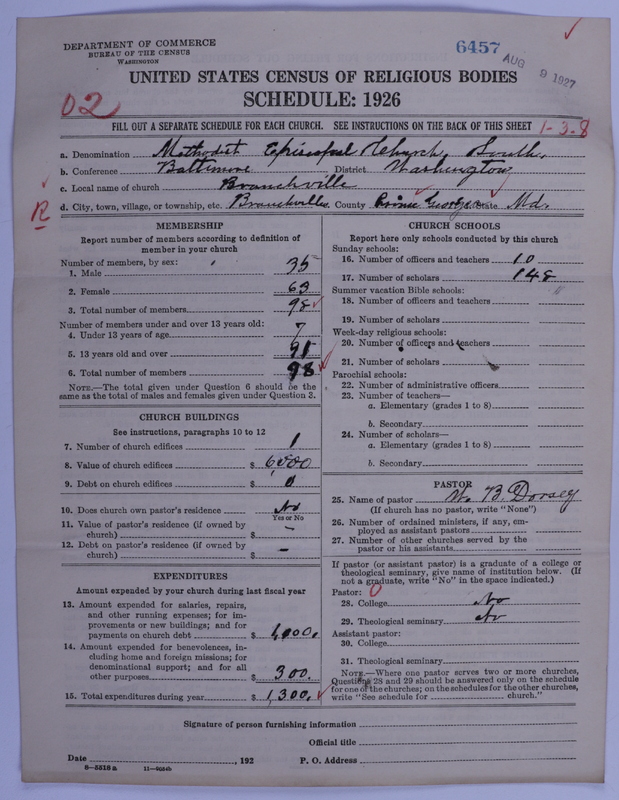 DEPARTMENT OF COMMERCE
BUREAU OF THE CENSUS
WASHINGTON
6457
AUG 9 1927
UNITED STATES CENSUS OF RELIGIOUS BODIES
SCHEDULE: 1926
02
FILL OUT A SEPARATE SCHEDULE FOR EACH CHURCH. SEE INSTRUCTIONS ON THE BACK OF THIS SHEET
1-3-8
a. Denomination Methodist Episcopal Church, South.
b. Conference Baltimore District Washington
c. Local name of church Branchville
R
d. City, town, village, or township, etc. Branchville County Prince Georges State Md.
MEMBERSHIP
Report number of members according to definition of
member in your church
Number of members, by sex:
1. Male 35
2. Female 63
3. Total number of members 98
Number of members under and over 13 years old:
4. Under 13 years of age 7
5. 13 years old and over 91
6. Total number of members 98
NOTE.—The total given under Question 6 should be the
same as the total of males and females given under Question 3.
CHURCH BUILDINGS
See instructions, paragraphs 10 to 12
7. Number of church edifices 1
8. Value of church edifices $ 6000
9. Debt on church edifices $ 0
10. Does church own pastor's residence No
Yes or No
11. Value of pastor's residence (if owned by
church) $ –
12. Debt on pastor's residence (if owned by
church) $ –
EXPENDITURES
Amount expended by your church during last fiscal year
13. Amount expended for salaries, repairs,
and other running expenses; for im-
provements or new buildings; and for
payments on church debt $ 1,000.
14. Amount expended for benevolences, in-
cluding home and foreign missions; for
denominational support; and for all
other purposes $ 300
15. Total expenditures during year $ 1,300.
CHURCH SCHOOLS
Report here only schools conducted by this church
Sunday schools:
16. Number of officers and teachers 10
17. Number of scholars 148
Summer vacation Bible schools:
18. Number of officers and teachers
19. Number of scholars
Week-day religious schools:
20. Number of officers and teachers
21. Number of scholars
Parochial schools:
22. Number of administrative officers
23. Number of teachers—
a. Elementary (grades 1 to 8)
b. Secondary
24. Number of scholars—
a. Elementary (grades 1 to 8)
b. Secondary
PASTOR
25. Name of pastor Wm B. Dorsey
(If church has no pastor, write "None")
26. Number of ordained ministers, if any, em-
ployed as assistant pastors
27. Number of other churches served by the
pastor or his assistants
If pastor (or assistant pastor) is a graduate of a college or
theological seminary, give name of institution below. (If
not a graduate, write "No" in the space indicated.)
Pastor: 0
28. College No
29. Theological seminary No
Assistant pastor:
30. College
31. Theological seminary
NOTE.—Where one pastor serves two or more churches,
Questions 28 and 29 should be answered only on the schedule
for one of the churches; on the schedules for the other churches,
write "See schedule for church."
Signature of person furnishing information
Official title
Date , 192 P. O. Address
8—5518 a 11—9034b